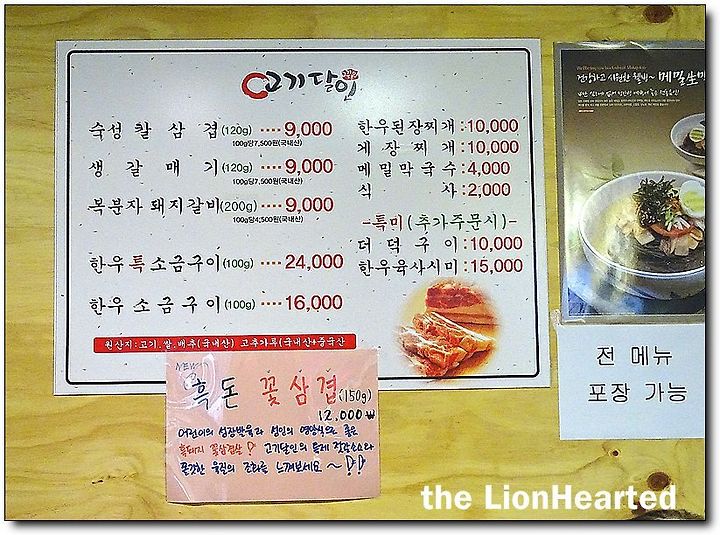 고기달인
숙성 칼 삼 겹 (120g) ···· 9,000
100g당7,500원(국내산)
생 갈 매 기 (120g) ···· 9,000
100g당7,500원(국내산)
복분자 돼지갈비 (200g) ···· 9,000
100g당4,500원(국내산)
한우특소금구이 (100g) ···· 24,000
한우 소금구이 (100g) ···· 16,000
한우된장찌개 : 10,000
게 장 찌 개 : 10,000
메밀막국수 : 4,000
식 사 : 2,000
-특미(추가주문시)-
더 덕 구 이 : 10,000
한우육사시미 : 15,000
원산지 : 고기,쌀,배추(국내산) 고추가루(국내산+중국산
NEW
흑돈 꽃삼겹 (150g)
12,000₩
어린이의 성장발육과 성인의 영양식으로 좋은
흑돼지 꽃삼겹살!! 고기달인의 특제 젓갈소스와
쫀득한 육질의 조화를 느껴보세요~!!
건강하고 시원한 웰빙~ 메밀생막
전 메뉴
포장 가능
the LionHearted